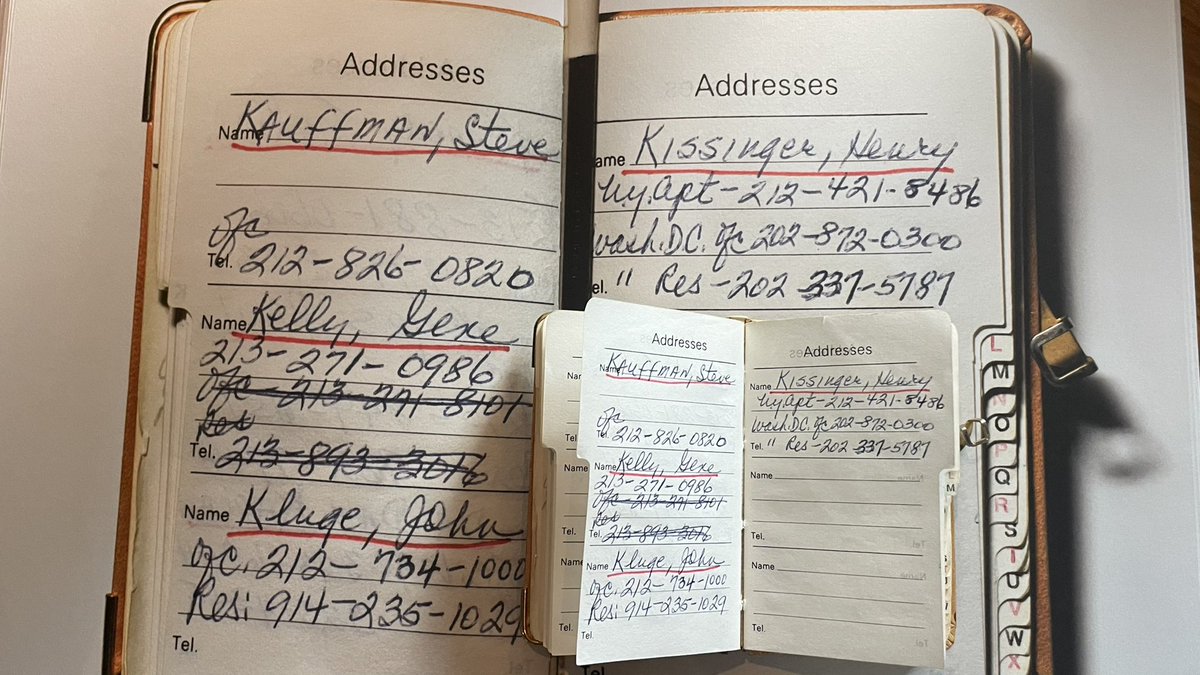 Addresses
Name KAUFFMAN, Steve
ofc
Tel. 212-826-0820
Name Kelly, Gene
213-271-0986
ofc-213-271-8101
Res
Tel. 213-893-3076
Name Kluge, John
ofc. 212-734-1000
Res: 914-235-1029
Tel.
Addresses
ame Kissinger, Henry
n.y. apt-212-421-8486
wash. D.C. ofc 202-872-0300
el. " Res-202 337-5787
L
M
N
O
P
Q
R
S
T
U
V
W
X
Na
Tel
Na
Tel.
Na
Tel.
Addresses
Name KAUFFMAN, Steve
ofc
Tel. 212-826-0820
Name Kelly, Gene
213-271-0986
ofc-213-271-8101
Res
Tel. 213-893-3076
Name Kluge, John
ofc. 212-734-1000
Res: 914-235-1029
Tel.
Addresses
Name Kissinger, Henry
n.y. apt-212-421-8486
wash. D.C. ofc 202-872-0300
Tel. " Res-202 337-5787
Name
Tel.
Name
Tel.
L
M
Tel